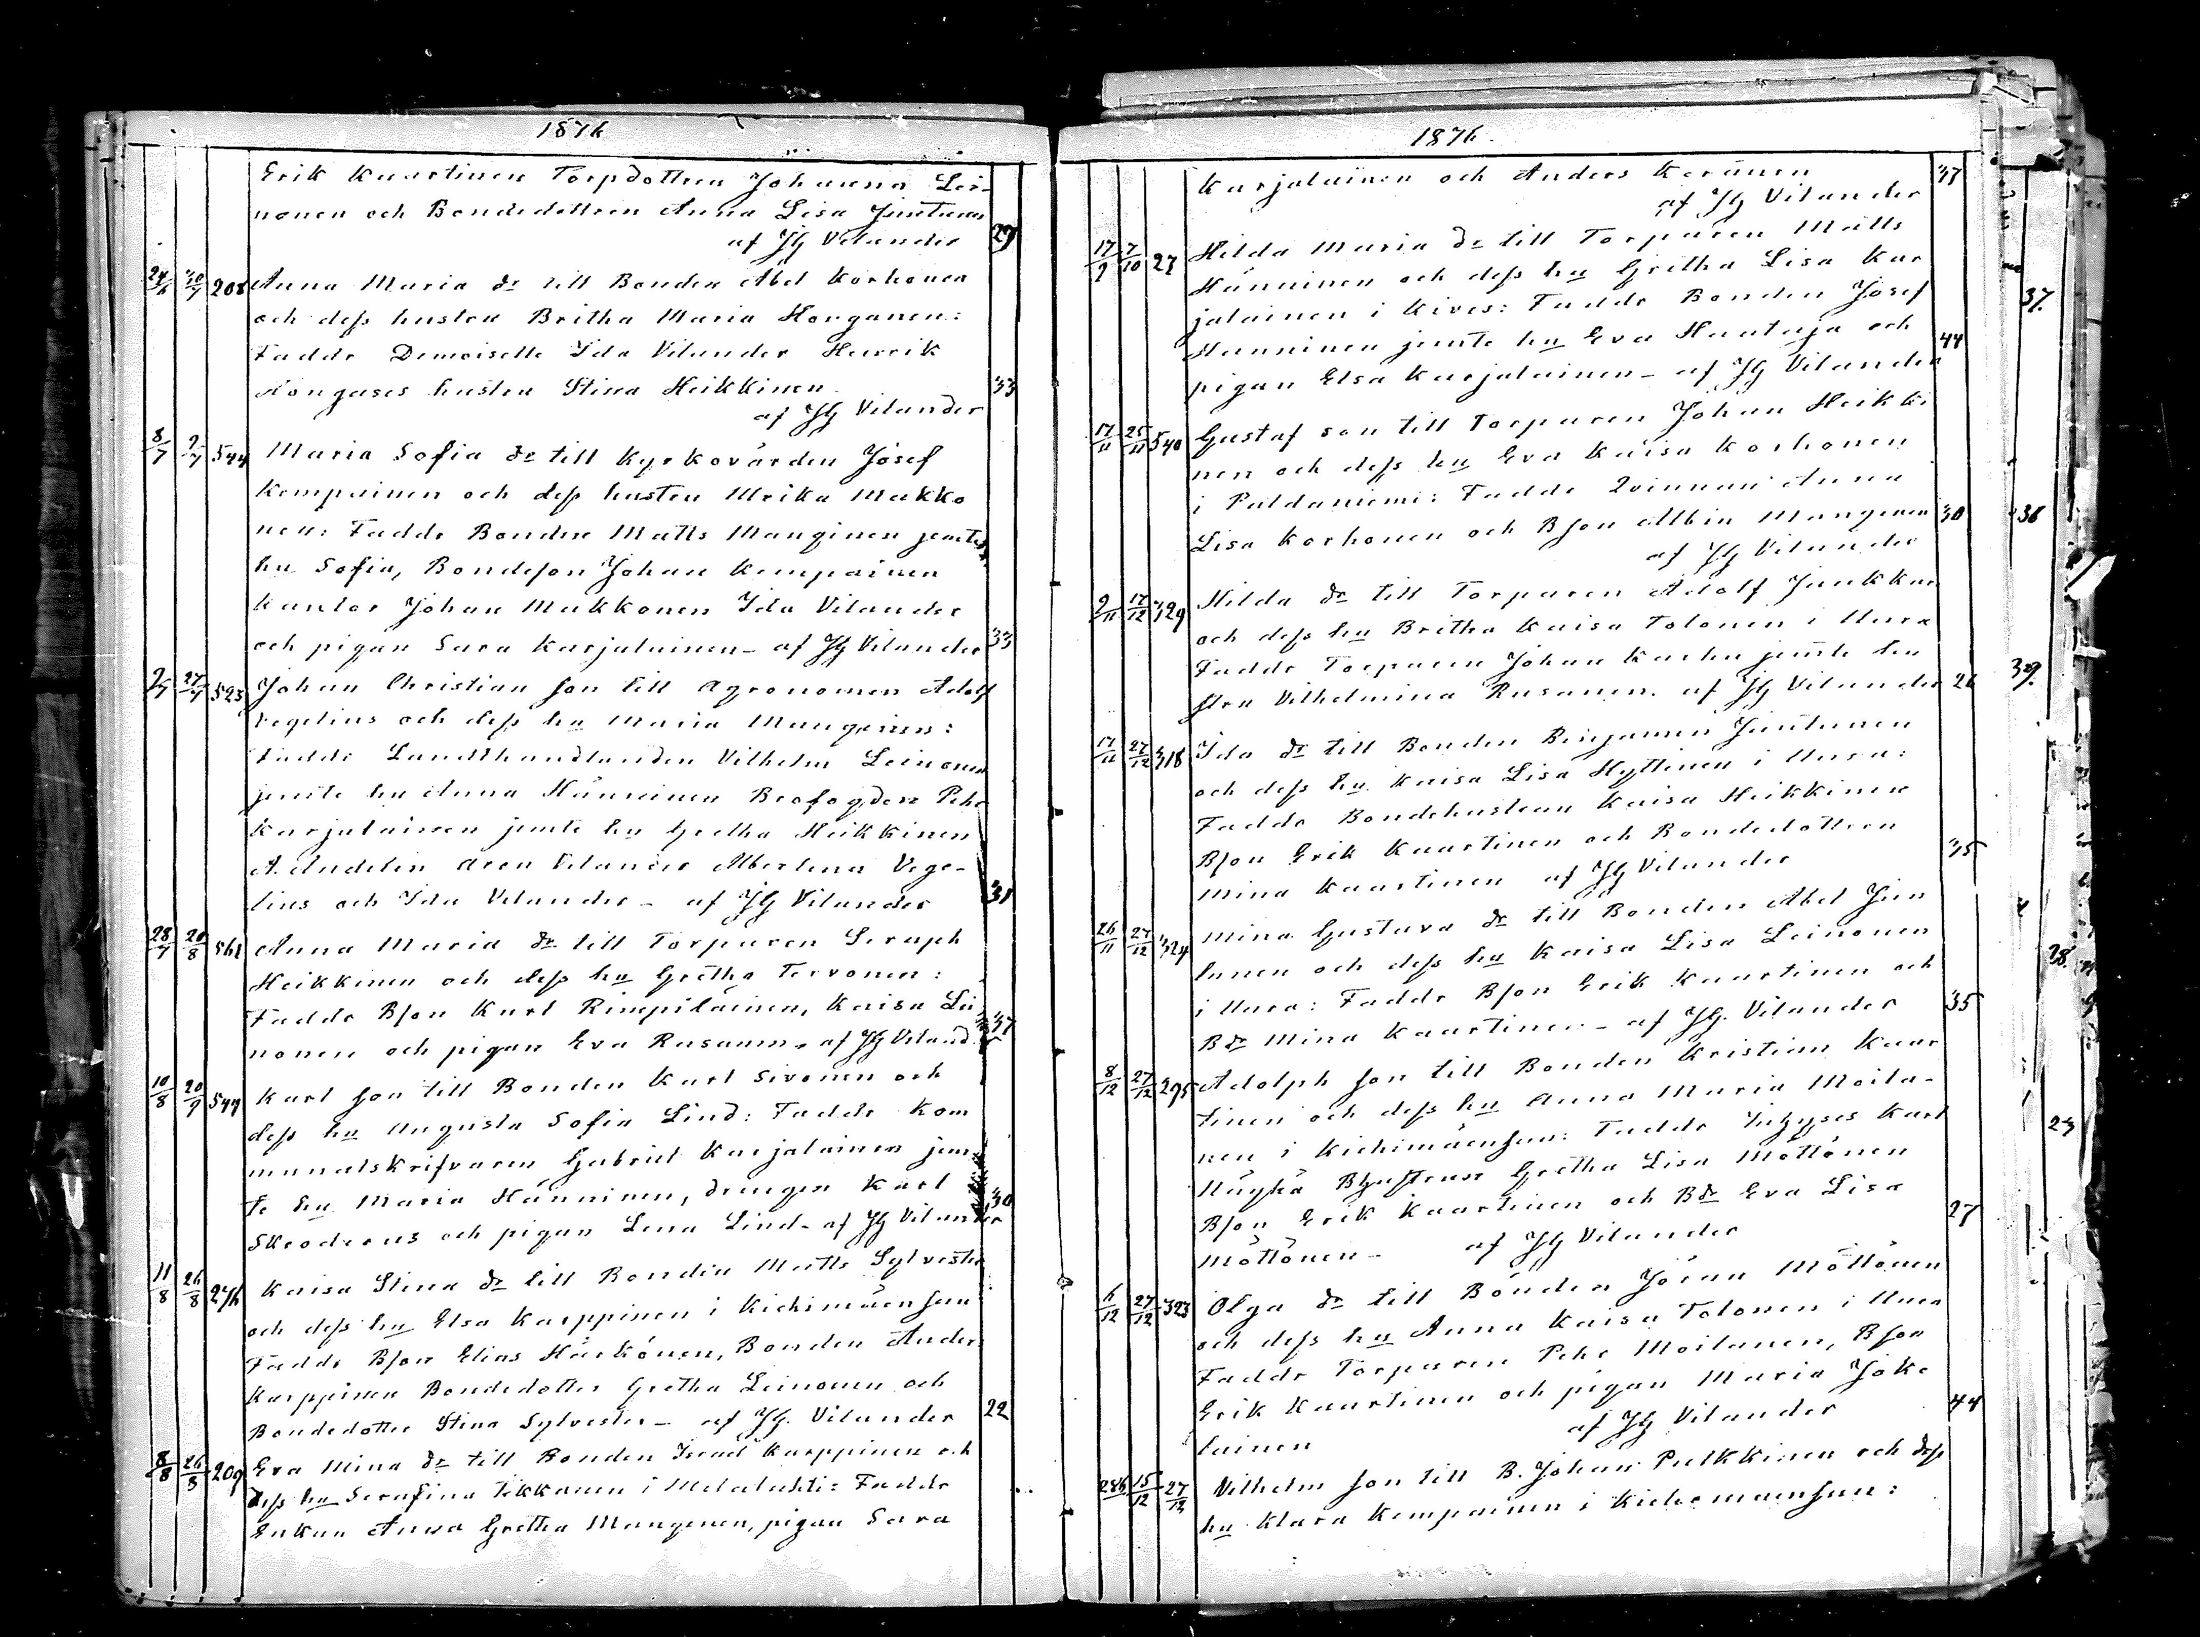 1876
Erik Kaartinen Torpdottren Johanna Lei-
nonen och Bondedottren Anna Lisa Juntunen
af JG Vilander 29
24/6 30/7 208 Anna Maria dr till Bonden Abel Korhonen
och dess hustru Britha Maria Honganen:
Faddr Demoiselle Ida Vilander Henrik
Hongases hustru Stina Heikkinen 33
af JG Vilander
8/7 9/7 544 Maria Sofia dr till Kyrkovärden Josef
Kempainen och dess hustru Ulrika Makko
nen: Faddr Bonden Matts Manginen jemte
hu Sofia, Bondeson Johan Kempainen
Kantor Johan Makkonen Ida Vilander
och pigan Sara Karjalainen - af JG Vilander 33
2/7 27/7 523 Johan Christian son till Agronomen Adolf
Vegelius och dess hu Maria Manginen:
Faddr Landthandlanden Vilhelm Leinonen
jemte hu Anna Hänninen Brofogden Pehr
Karjalainen jemte hu Gretha Heikkinen
A. Andelin Aron Vilander Albertina Vege-
lius och Ida Vilander - af JG Vilander 31
28/7 20/8 561 Anna Maria dr till Torparen Seraph
Heikkinen och dess hu Gretha Tervonen:
Faddr Bson Karl Rimpiläinen, Kaisa Lei
nonen och pigan Eva Rusanen - af JG Viland. 37
10/8 20/9 544 Karl son till Bonden Karl Sivonen och
dess hu Augusta Sofia Lind: Faddr Kom
munalskrifvaren Gabriel Karjalainen jem
te hu Maria Hänninen, drengen Karl 30
Skroderus och pigan Lena Lind - af JG Vilander
11/8 26/8 276 Kaisa Stina dr till Bonden Matts Sylvester
och dess hu Elsa Karppinen i Kiehimäensuu
Faddr Bson Elias Härkönen, Bonden Anders
Karppinen Bondedotter Gretha Leinonen och
Bondedotter Stina Sylvester - af JG. Vilander 22
8/8 26/8 209 Eva Mina dr till Bonden Israel Karppinen och
dess hu Serafina Tikkanen i Melalahti: Faddr
Enkan Anna Gretha Manginen, pigan Sara
1876.
Karjalainen och Anders Keränen 37
af JG Vilander
17/9 7/10 27 Hilda Maria dr till Torparen Matts
Hänninen och dess hu Gretha Lisa Kar
jalainen i Kives: Faddr Bonden Josef
Hänninen jemte hu Eva Huataja och 44
pigan Elsa Karjalainen - af JG Vilander
17/11 25/11 540 Gustaf son till Torparen Johan Heikki
nen och dess hu Eva Kaisa Korhonen
i Paldaniemi: Faddr Qvinnan Anna
Lisa Korhonen och Bson Albin Manginen 30
af JG Vilander
2/11 17/12 329 Hilda dr till Torparen Adolf Junkkari
och dess hu Britha Kaisa Tolonen i Uura
Faddr Torparen Johan Karhu jemte hu
stru Vilhelmina Rusanen. af JG Vilander 26
17/11 27/12 318 Ida dr till Bonden Benjamin Juntunen
och dess hu Kaisa Lisa Hyttinen i Uura:
Faddr Bondehustrun Kaisa Heikkinen
Bson Erik Kaartinen och Bondedottren 35
Mina Kaartinen af JG Vilander
26/11 27/12 324 Mina Gustava dr till Bonden Abel Jun
tunen och dess hu Kaisa Lisa Leinonen
i Uura: Faddr Bson Erik Kaartinen och 35
Bdr Mina Kaartinen - af JG. Vilander
8/12 27/12 295 Adolph son till Bonden Kristian Kaar
tinen och dess hu Anna Maria Moila-
nen i Kiehimäensuu: Faddr Inhyses Karl
Bhustrun Gretha Lisa Möttönen
Bson Erik Kaartinen och Bdr Eva Lisa 27
Möttönen - af JG Vilander
6/12 27/12 323 Olga dr till Bonden Jöran Möttönen
och dess hu Anna Kaisa Tolonen i Uura
Faddr Torparen Pehr Moilanen, Bson
Erik Kaartinen och pigan Maria Joke 44
lainen af JG Vilander
286 15/12 27/12 Vilhelm son till B. Johan Pulkkinen och dess
hu Klara Kempainen i Kiehemäensuu:
37.
36
39.
28.
23